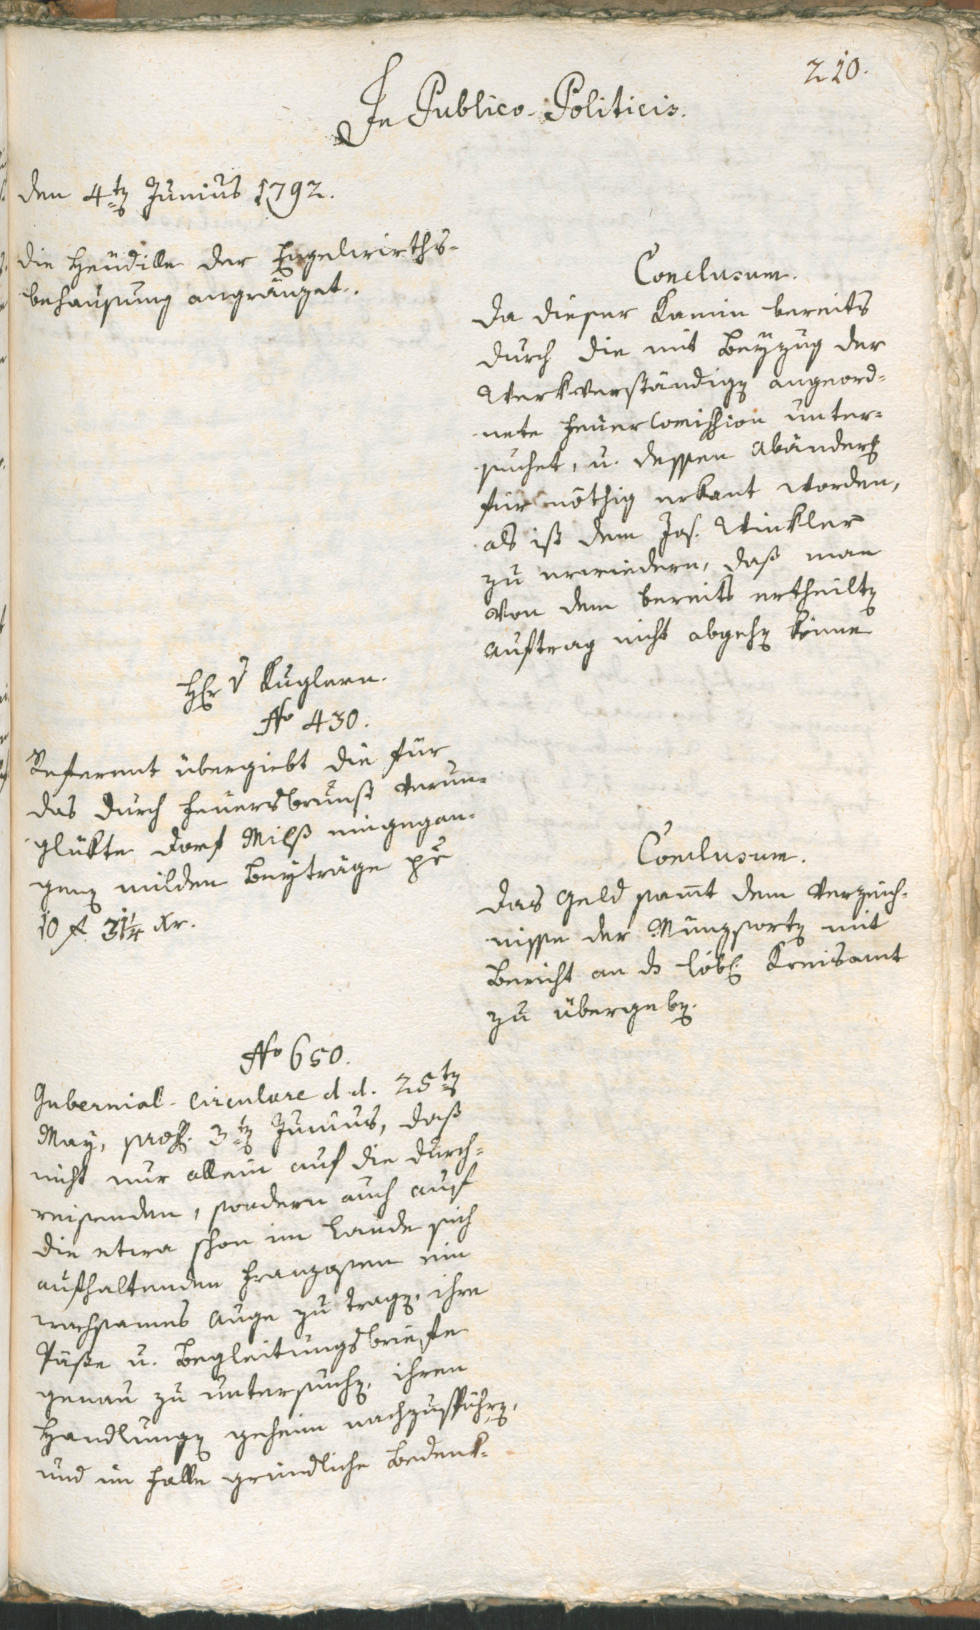 210.
In Publico-Politicis.
den 4ten Junius 1792.
die Heüdille der Engelwirths-
behausung angränzet.
Conclusum.
Da dieser Kamin bereits
durch die mit Beyzug der
Werkverständigen angeord-
nete Feuer Comission unter-
suchet, u. dessen Abänderg
für nöthig erkant worden,
als ist dem Jos. Winkler
zu erwiedern, daß man
von dem bereits ertheilten
Auftrag nicht abgehen könne
Hr v Kuglern.
No 430.
Referent übergiebt die für
das durch Feuersbrunst verun-
glükte Dorf Milß eingegan-
genen milden Beyträge pr
10 f. 31¼ xr.
Conclusum.
Das Geld samt dem Verzeich-
nisse der Münzsorten mit
Bericht an ds löbl. Kreisamt
zu übergeben.
No 650.
Gubernial-Circulare d. d. 25ten
May, pros. 3ten Junius, daß
nicht nur allein auf die durch-
reisenden, sondern auch auf
die etwa schon im Lande sich
aufhaltenden Franzosen ein
wachsames Auge zu tragen, ihre
Päße u. Begleitungsbriefe
genau zu untersuchen, ihren
Handlungen geheim nachzuspühren,
und im Falle gründliche Bedenk-